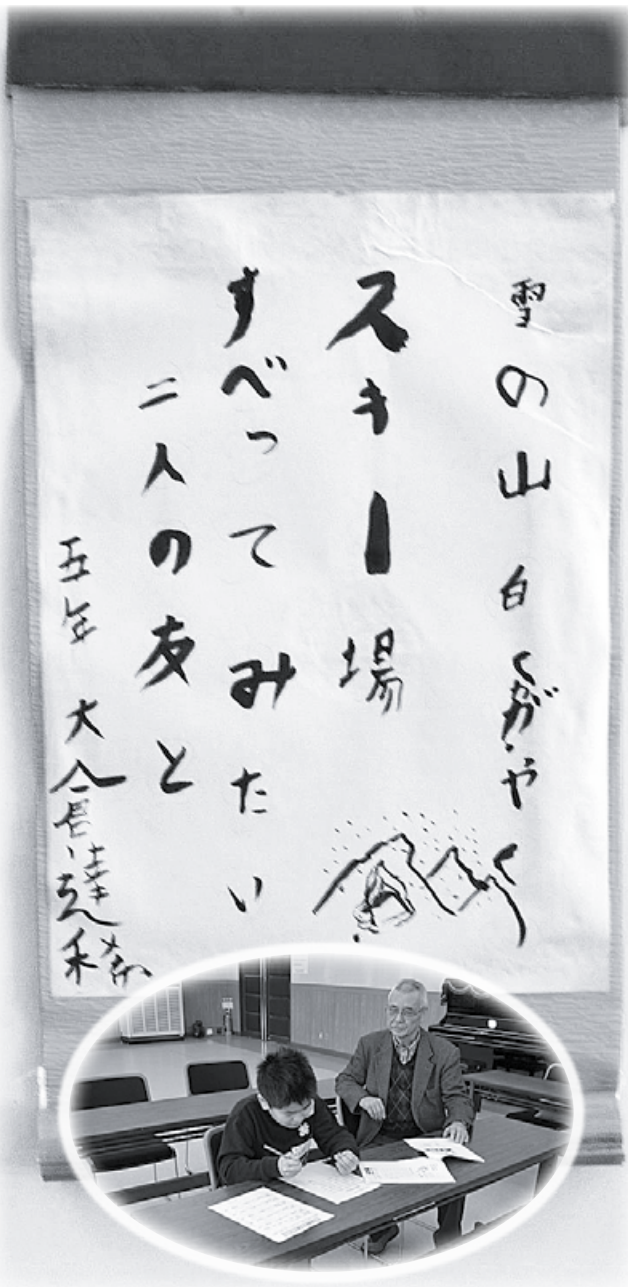 雪の山 白くがやく
スキー場
すべってみたい
二人の友と
五年 大倉達